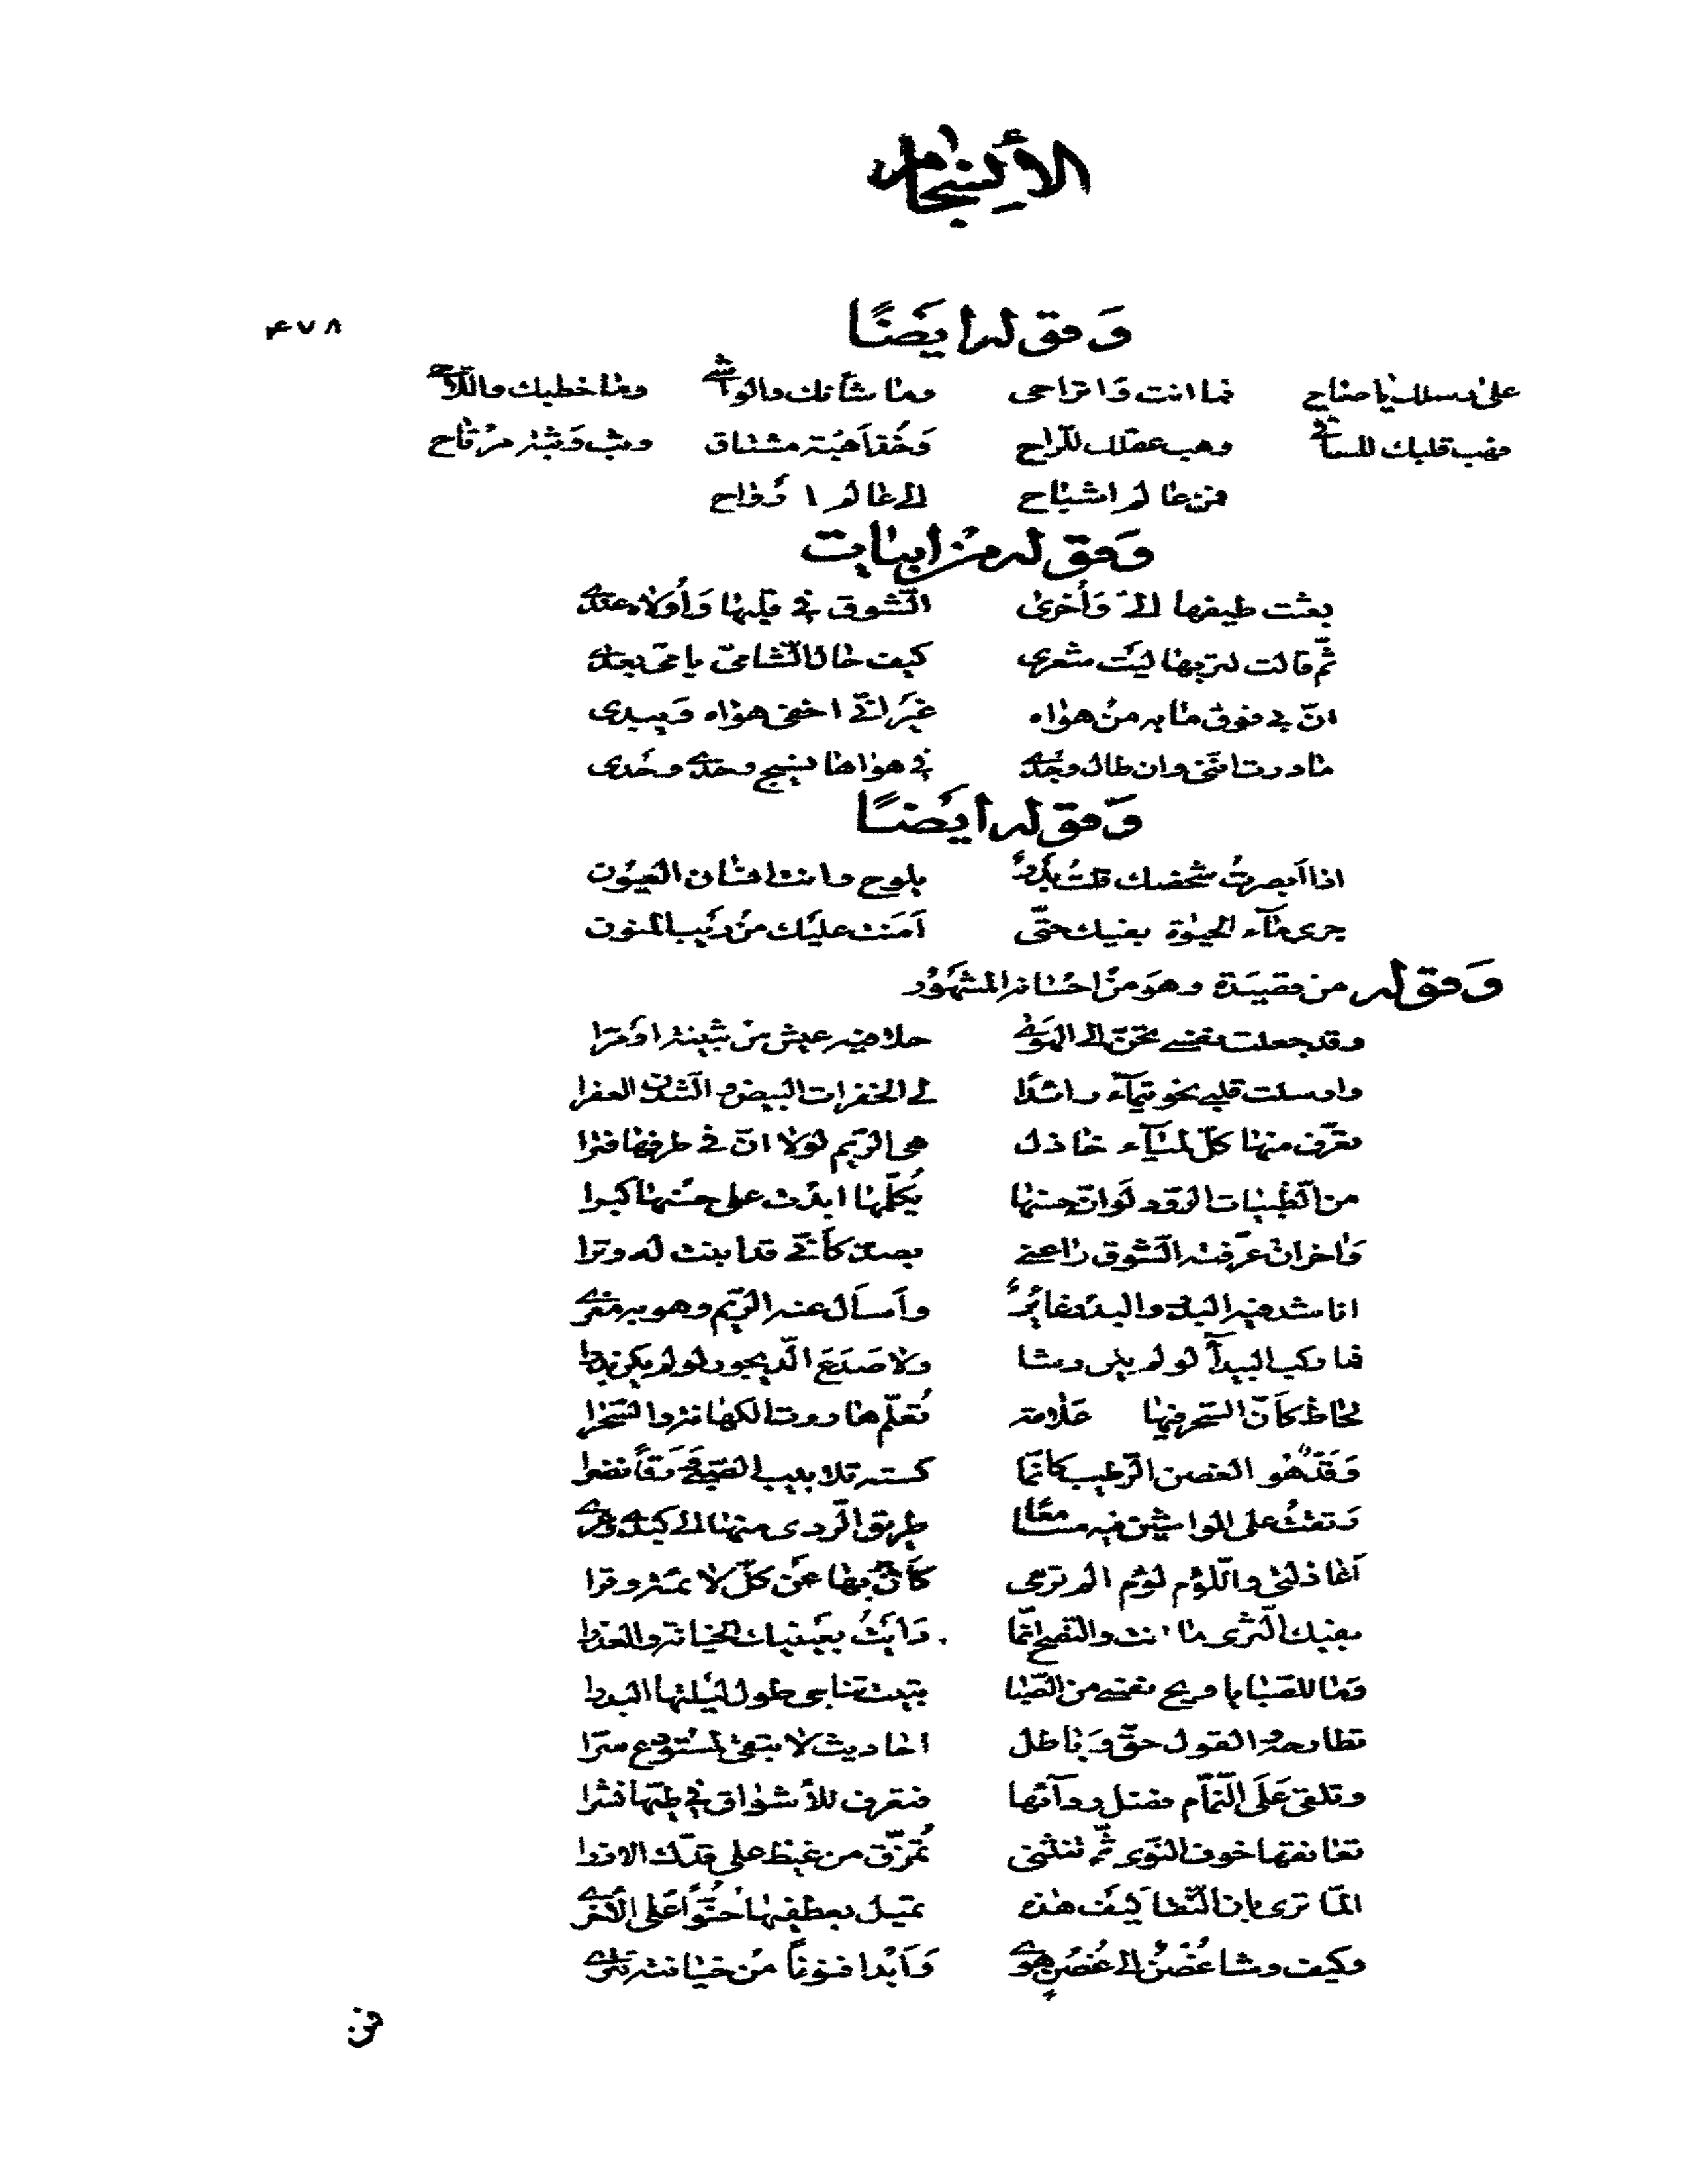 الأنسجام
۴۷۸
وقوله ايضًا
على رسلك يا صاح فما انت وَاتراحى وما شأنك والواشي وما خطبك واللّاحي
فهب قلبك للساقي وهب عقلك للرّاح وَخُذ اُهبة مشتاق وثب وَثبة مرتاح
فمن عالم اشباح الى عالم اَرواح
وقوله من ابيات
بعثت طيفها الىّ وَأخرىٰ الشّوق في قلبها وَأولاه عندي
ثمّ قالت لتربها ليت شعرى كيف حال الشّامىّ يا مىّ بعدي
انّ بي فوق ما به من هواه غير انّي اخفى هواه ويبدى
ما درت انّنى وان طال وجدي في هواها نسيج وحدي وحدى
وقوله ايضًا
اذا اَبصرتُ شخصك قلتُ بدرٌ يلوح وانت انسان العيُون
جرى ماۤء الحيوٰة بفيك حتّى اَمنت عليك من رَيب المنون
وقوله من قصيدة وهو من احسانه المشهُور
وقد جعلت نفسى تحنّ الى الهوى حلا فيه عيش من بثينة او مرّا
وارسلت قلبي نحو تيماۤء رائدًا الى الخفرات البيض والشدن العفرا
تعرّف منها كلّ لمياۤء خاذل هى الريم لولا انّ في طرفها فترا
من الظبيات الرود لو انّ حسنها يُكلّمها ابدت على حسنها كبرا
وَاخر ان عرّفته الشّوق راعنى بصدّ كأنّي قد ابنت له وترا
اناشد فيه البدر والبدر غائرٌ واَسأل عنه الريم وهو به مغرى
فما ركب البيداۤ لو لم يلن رشا ولا صَدَعَ الدّيجور لو لم يكن بدرا
لحاظ كأنّ السّحر فيها علامة تُعلّم هاروت الكهانة والسّحرا
وَقدّ هُو الغصن الرّطيب كأنّما كسته تلابيب الصّبى وَرَقًا نضرا
رتقتُ على الواشين فيه مسامعًا طريق الرّدى منها الى كبدي وعرى
اَعاذلتى واللّوم لؤم الم ترى كأنّ بها عن كلّ لائمة وقرا
بفيك الثّرى ما انت والنّصح انّما رَأيتُ بعينيك الخيانة والغدرا
وما للصّبا يا ويح نفسى من الصّبا تبيت تناجى طول ليلتها البدرا
تطارحه القول حقّ وباطل احاديث لا تبقى لمستودع سرّا
وتلقى عَلَى النمّام فضل ردآئها فنعرف للأشواق في طيّها نشرا
تعانقها خوف النّوى ثمّ تنثنى تُمزّق من غيظ على قدّك الازرا
المّا ترى بان النّقا كيف هذه تميل بعطفيها حنوّاً على الأُخرى
وكيف وشا غُصنٌ الى غُصنٍ هوى وَاَبدا فنوناً من خيانته تترى
فن